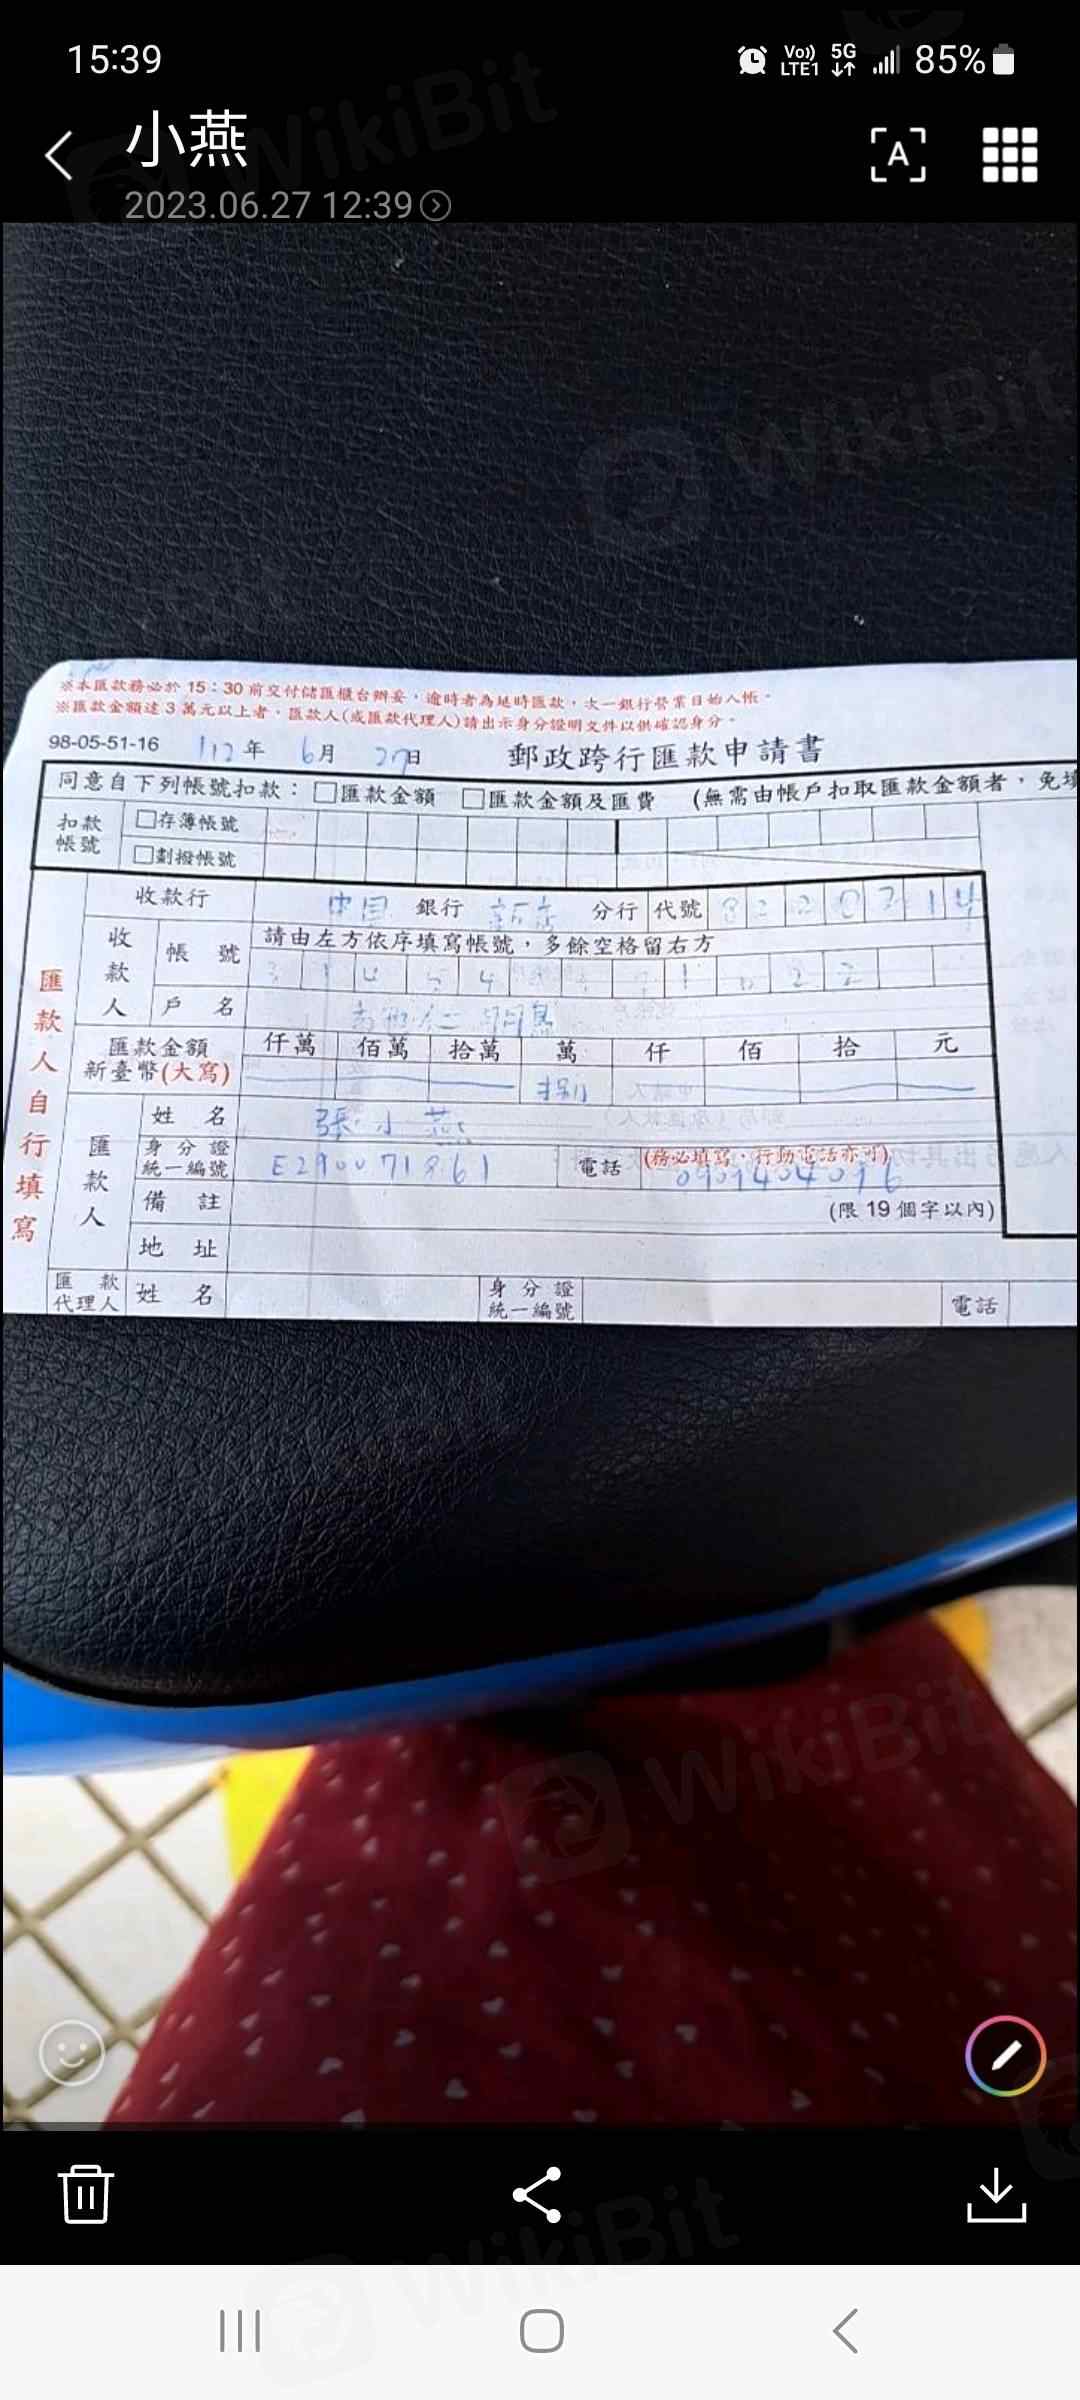 15:39
Vo)) LTE1 5G 85%
小燕
2023.06.27 12:39
※本匯款務必於 15：30 前交付儲匯櫃台辦妥，逾時者為延時匯款，次一銀行營業日始入帳。
※匯款金額達 3 萬元以上者，匯款人(或匯款代理人)請出示身分證明文件以供確認身分。
98-05-51-16 112年 6月 27日 郵政跨行匯款申請書
同意自下列帳號扣款：□匯款金額 □匯款金額及匯費 (無需由帳戶扣取匯款金額者，免填
扣款帳號 □存簿帳號
□劃撥帳號
匯款人自行填寫
收款行 中国 銀行 新店 分行 代號 8220714
收款人 帳號 請由左方依序填寫帳號，多餘空格留右方
戶名
匯款金額 仟萬 佰萬 拾萬 萬 仟 佰 拾 元
新臺幣(大寫) 捌
匯款人 姓名 張小燕
身分證統一編號 E290071861 電話 (務必填寫，行動電話亦可)
備註 (限 19 個字以內)
地址
匯款代理人 姓名 身分證統一編號 電話
WikiBit
WikiBit
WikiBit
WikiBit